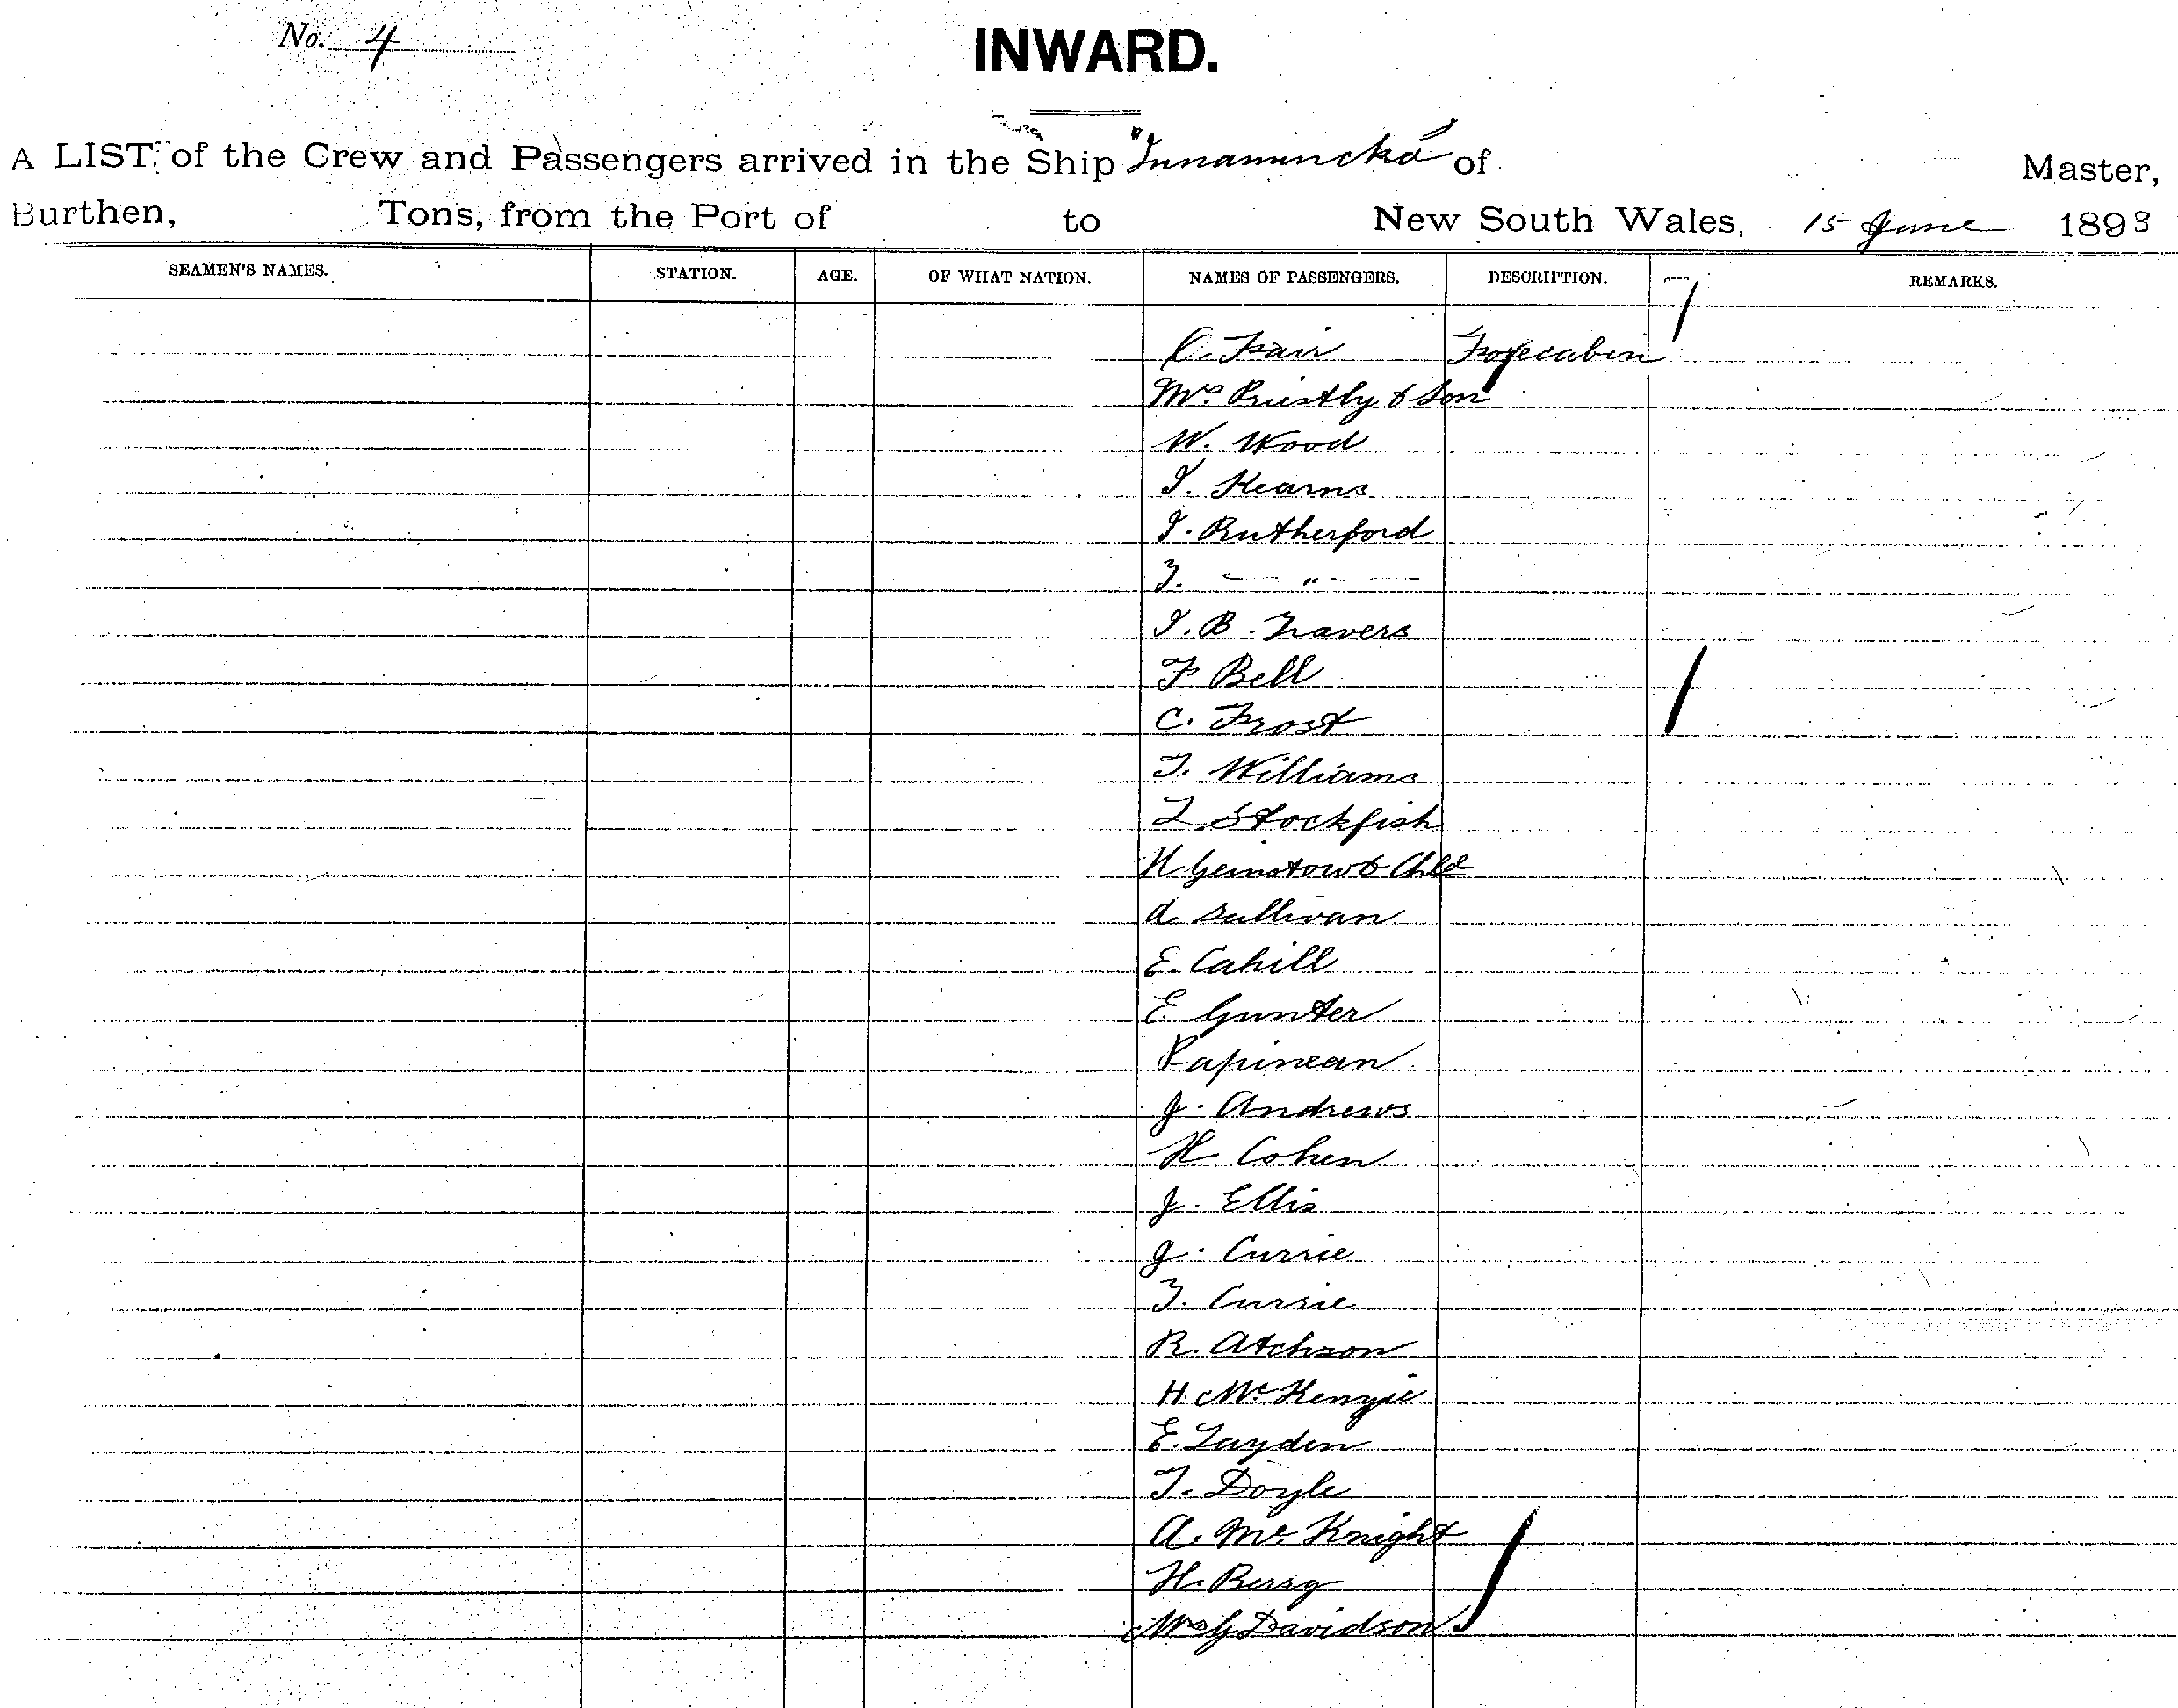 No. 4
INWARD.
A LIST of the Crew and Passengers arrived in the Ship "Innamincka" of Master,
Burthen, Tons, from the Port of to New South Wales, 15 June 1893
SEAMEN'S NAMES. STATION. AGE. OF WHAT NATION. NAMES OF PASSENGERS. DESCRIPTION. REMARKS.
C. Fair Forecabin
Mrs. Priestly & Son
W. Wood
J. Kearns
J. Rutherford
T. — " —
J. B. Travers
F Bell
C. Frost
T. Williams
L. Stockfish
H & Chld
A. Sullivan
E. Cahill
E. Gunter
Papinean
J. Andrews
H. Cohen
J. Ellis
J. Currie
T. Currie
R. Atchson
H. McKenzie
E. Layden
T. Doyle
A. Mc Knight
H. Berry
Mrs G Davidson